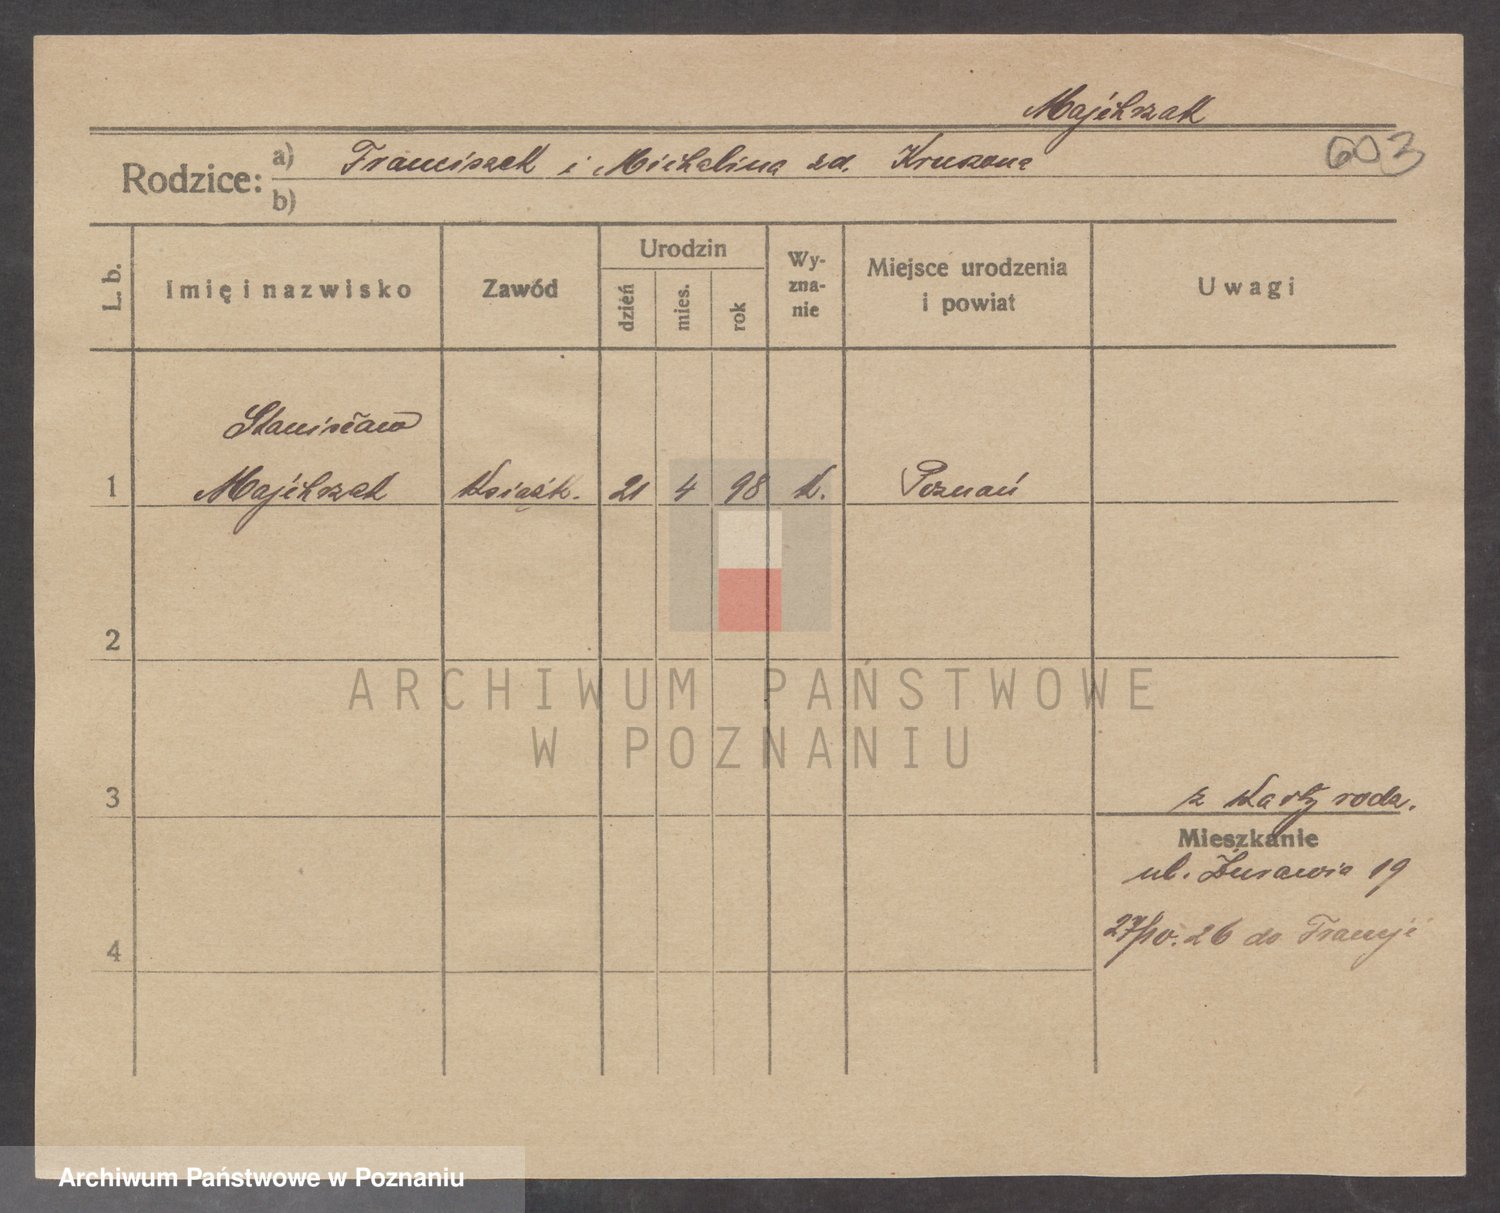 Majchrzak
603
Rodzice:
a) Franciszek i Michalina zd. Kruszona
b)
L. b.
Imię i nazwisko
Zawód
Urodzin
dzień
mies.
rok
Wy-
zna-
nie
Miejsce urodzenia
i powiat
Uwagi
Stanisław
1 Majchrzak Książk. 21 4 98 k. Poznań
2
3
4
z karty rodz.
Mieszkanie
ul. Żurawia 19
27/10. 26 do Francji
ARCHIWUM PAŃSTWOWE
W POZNANIU
Archiwum Państwowe w Poznaniu